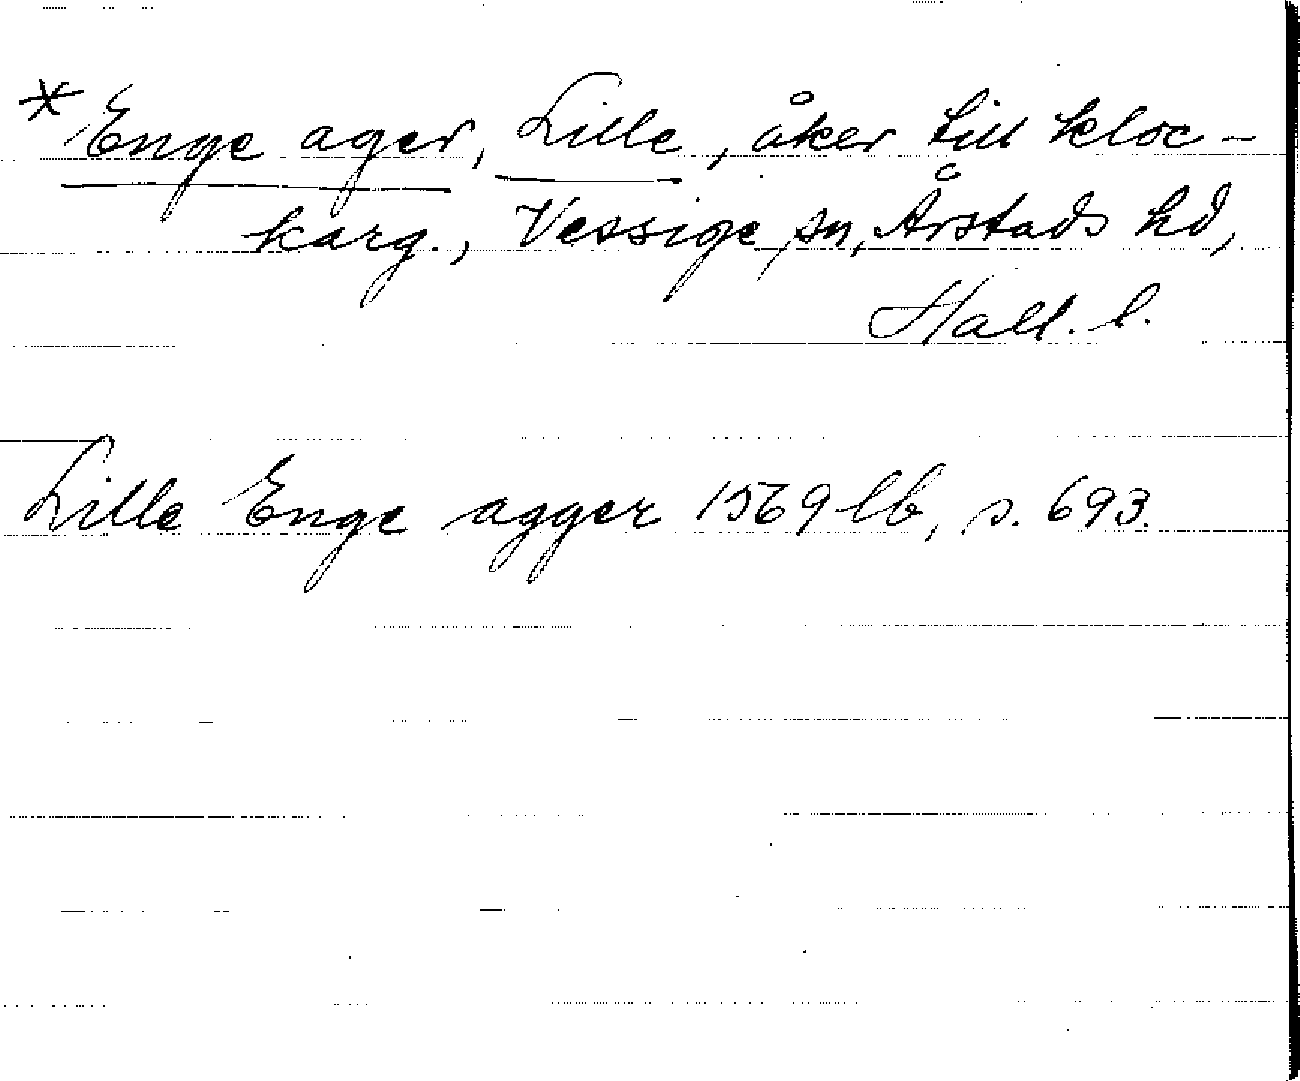 * Enge ager, Lille, åker till kloc-
karg., Vessige sn, Årstads hd,
Hall. l.
Lille Enge agger 1569 lb, s. 693.